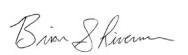 Brian S Riverman